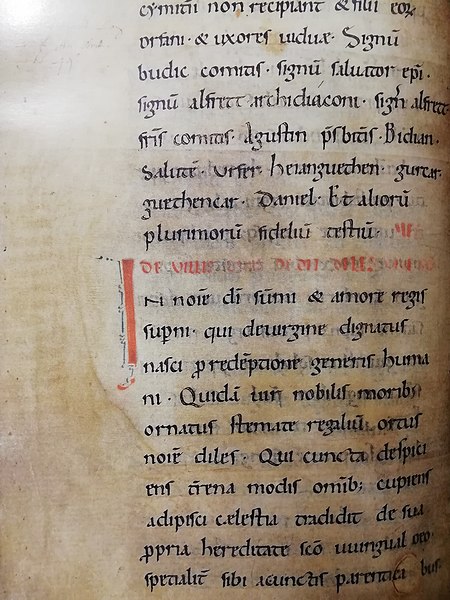 cymitiū non recipiant & filii eoꝝ
orfani · & uxores uiduæ · Signū
budic comitis · signū saluator ep̄i ·
signū alfrett archidiaconi · sign̄ alfrett
fr̄is comitis · Agustin p̄sbit̄is · Bidian ·
Salutē · Urfer · heianguethen · gurcar
guethencar · Daniel · Et alioRū
plurimorū fidelium testiū ·
DE
IN noīe dī sūmi & amore regis
sup̄ni · qui deuirgine dignatus
nasci p̄ redēptione generis huma
ni · Quidā uir nobilis moribꝰ
ornatus stemate regaliū ortus
noīe diles · Qui cuncta despici
ens t̄rena modis omīb; cupiens
adipisci cælestia tradidit de sua
ꝓpria hereditate sc̄o uuingualoeo ·
specialit̄ sibi acunctis parentibus ·